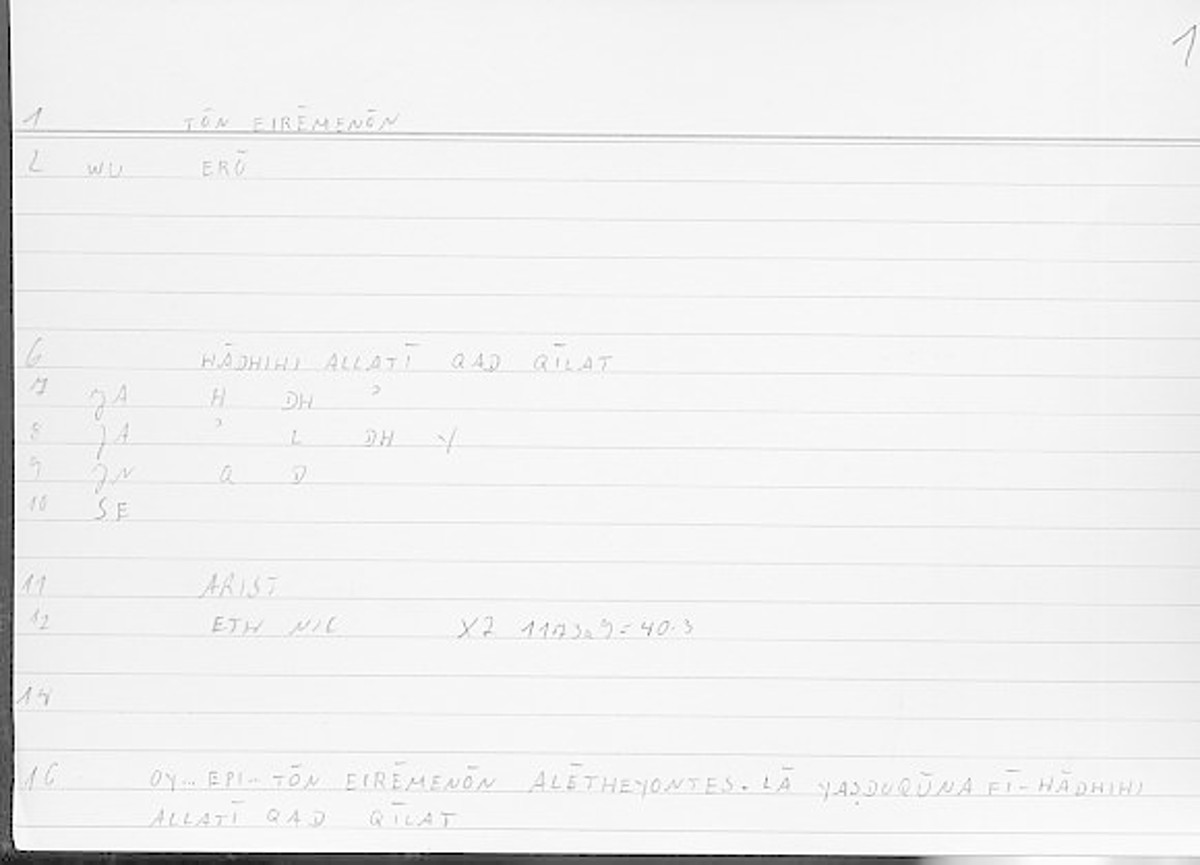 1
1 TŌN EIRĒMENŌN
2 WU ERŌ
6 HĀDHIHI ALLATĪ QAD QĪLAT
7 JA H DH ʾ
8 JA ʾ L DH Y
9 JN Q D
10 SE
11 ARIST
12 ETH NIC X7 1173a9=40.3
14
16 OY... EPI-- TŌN EIRĒMENŌN ALĒTHEYONTES. LĀ YAṢDUQŪNA FĪ-HĀDHIHI
ALLATĪ QAD QĪLAT